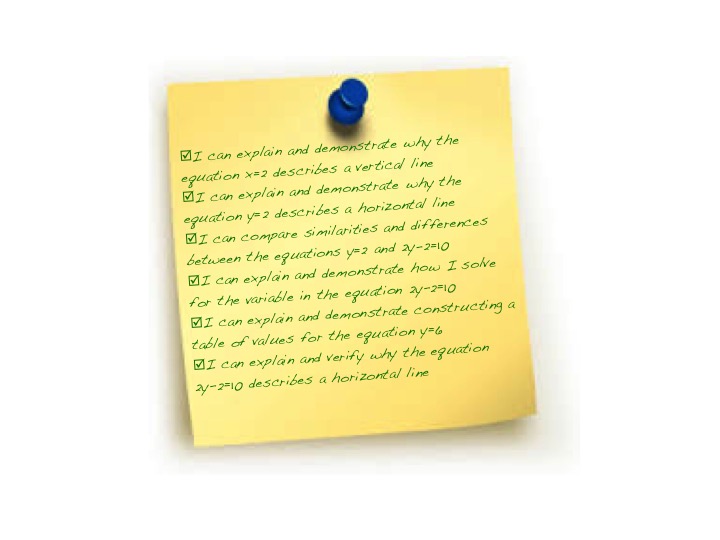 ☑I can explain and demonstrate why the
equation x=2 describes a vertical line
☑I can explain and demonstrate why the
equation y=2 describes a horizontal line
☑I can compare similarities and differences
between the equations y=2 and 2y-2=10
☑I can explain and demonstrate how I solve
for the variable in the equation 2y-2=10
☑I can explain and demonstrate constructing a
table of values for the equation y=6
☑I can explain and verify why the equation
2y-2=10 describes a horizontal line